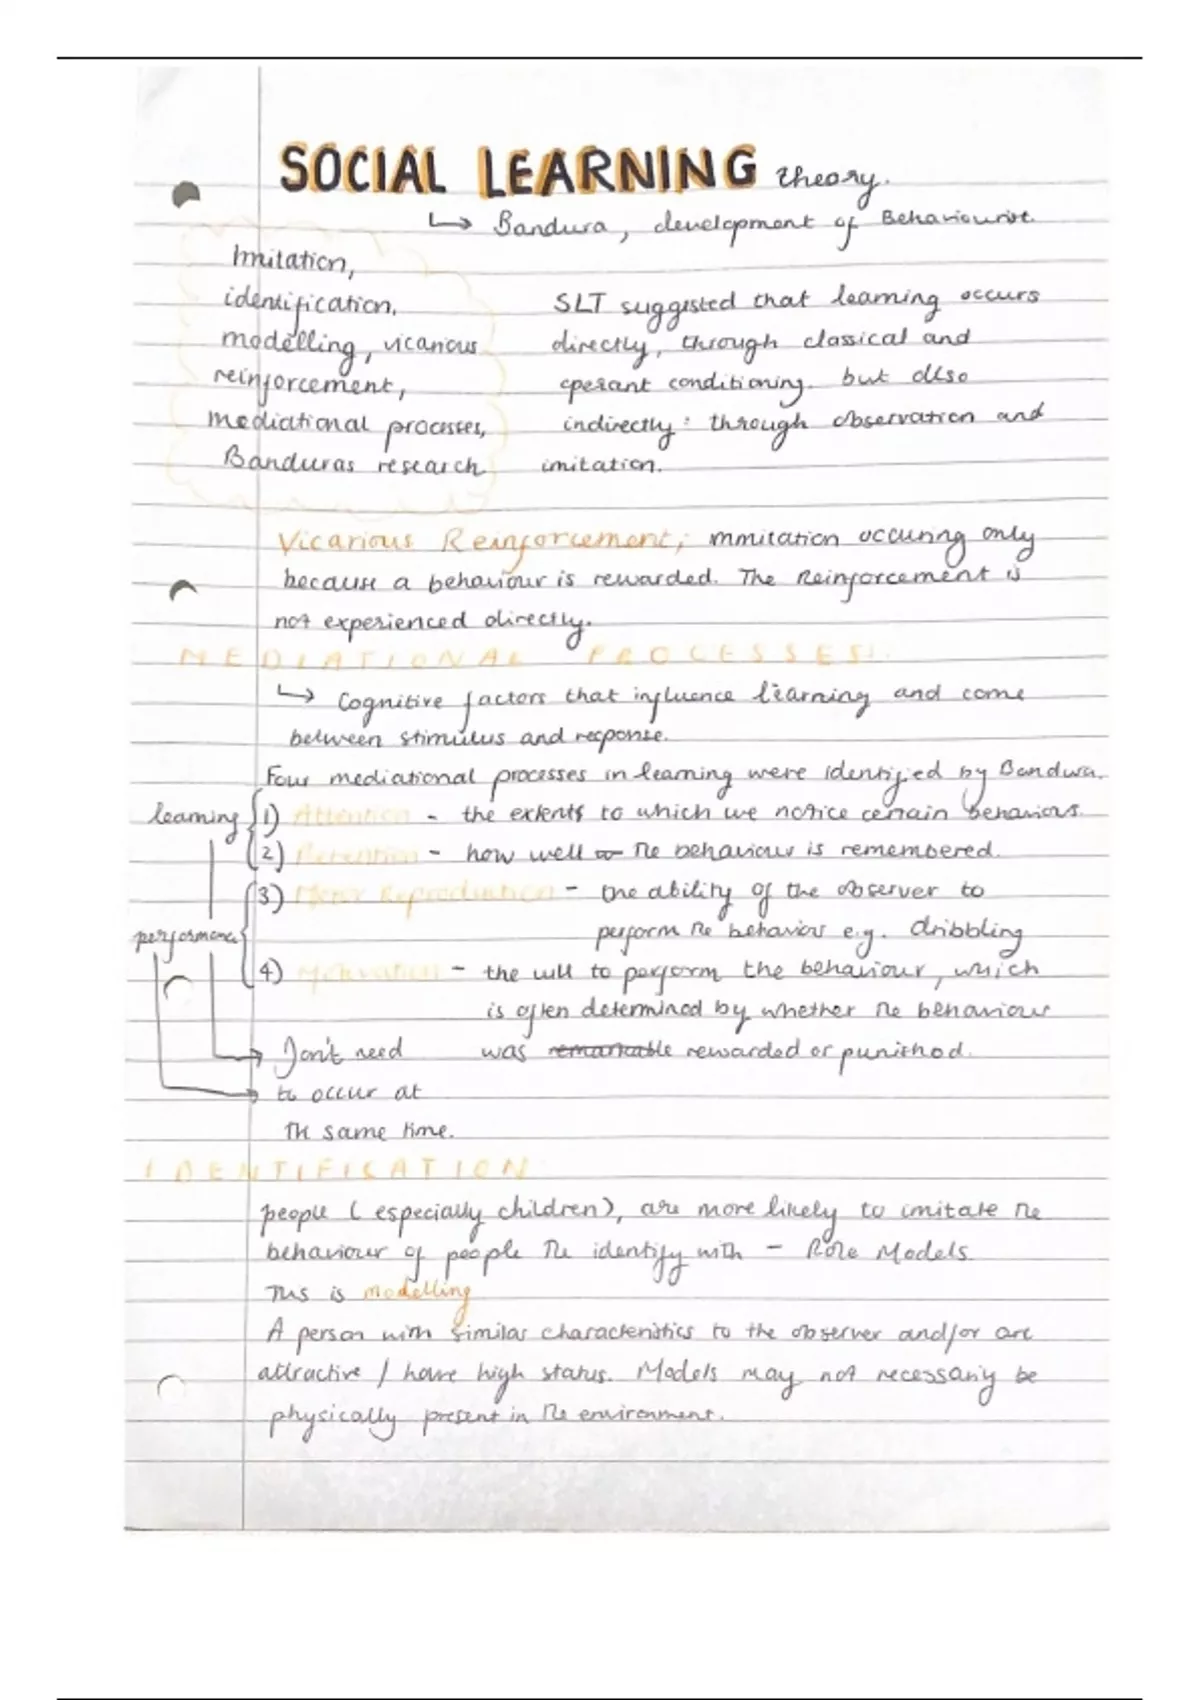 SOCIAL LEARNING theory.
↳ Bandura, development of Behaviourist.
Imitation,
identification,
modelling, vicarious
reinforcement,
mediational processes,
Banduras research
SLT suggested that learning occurs
directly, through classical and
operant conditioning. but also
indirectly: through observation and
imitation.
Vicarious Reinforcement; immitation occuring only
because a behaviour is rewarded. The Reinforcement is
not experienced directly.
MEDIATIONAL PROCESSES:
↳ Cognitive factors that influence learning and come
between stimulus and response.
Four mediational processes in learning were identified by Bandura.
learning
1) Attention - the extents to which we notice certain behaviours.
2) Retention - how well the behaviour is remembered.
3) Motor Reproduction - the ability of the observer to
perform the behaviour e.g. dribbling
performance
4) Motivation - the will to perform the behaviour, which
is often determined by whether the behaviour
was remarkable rewarded or punished.
Don't need
to occur at
the same time.
IDENTIFICATION
people (especially children), are more likely to imitate the
behaviour of people the identify with - Role Models.
This is modelling
A person with similar characteristics to the observer and/or are
attractive / have high status. Models may not necessarily be
physically present in the environment.